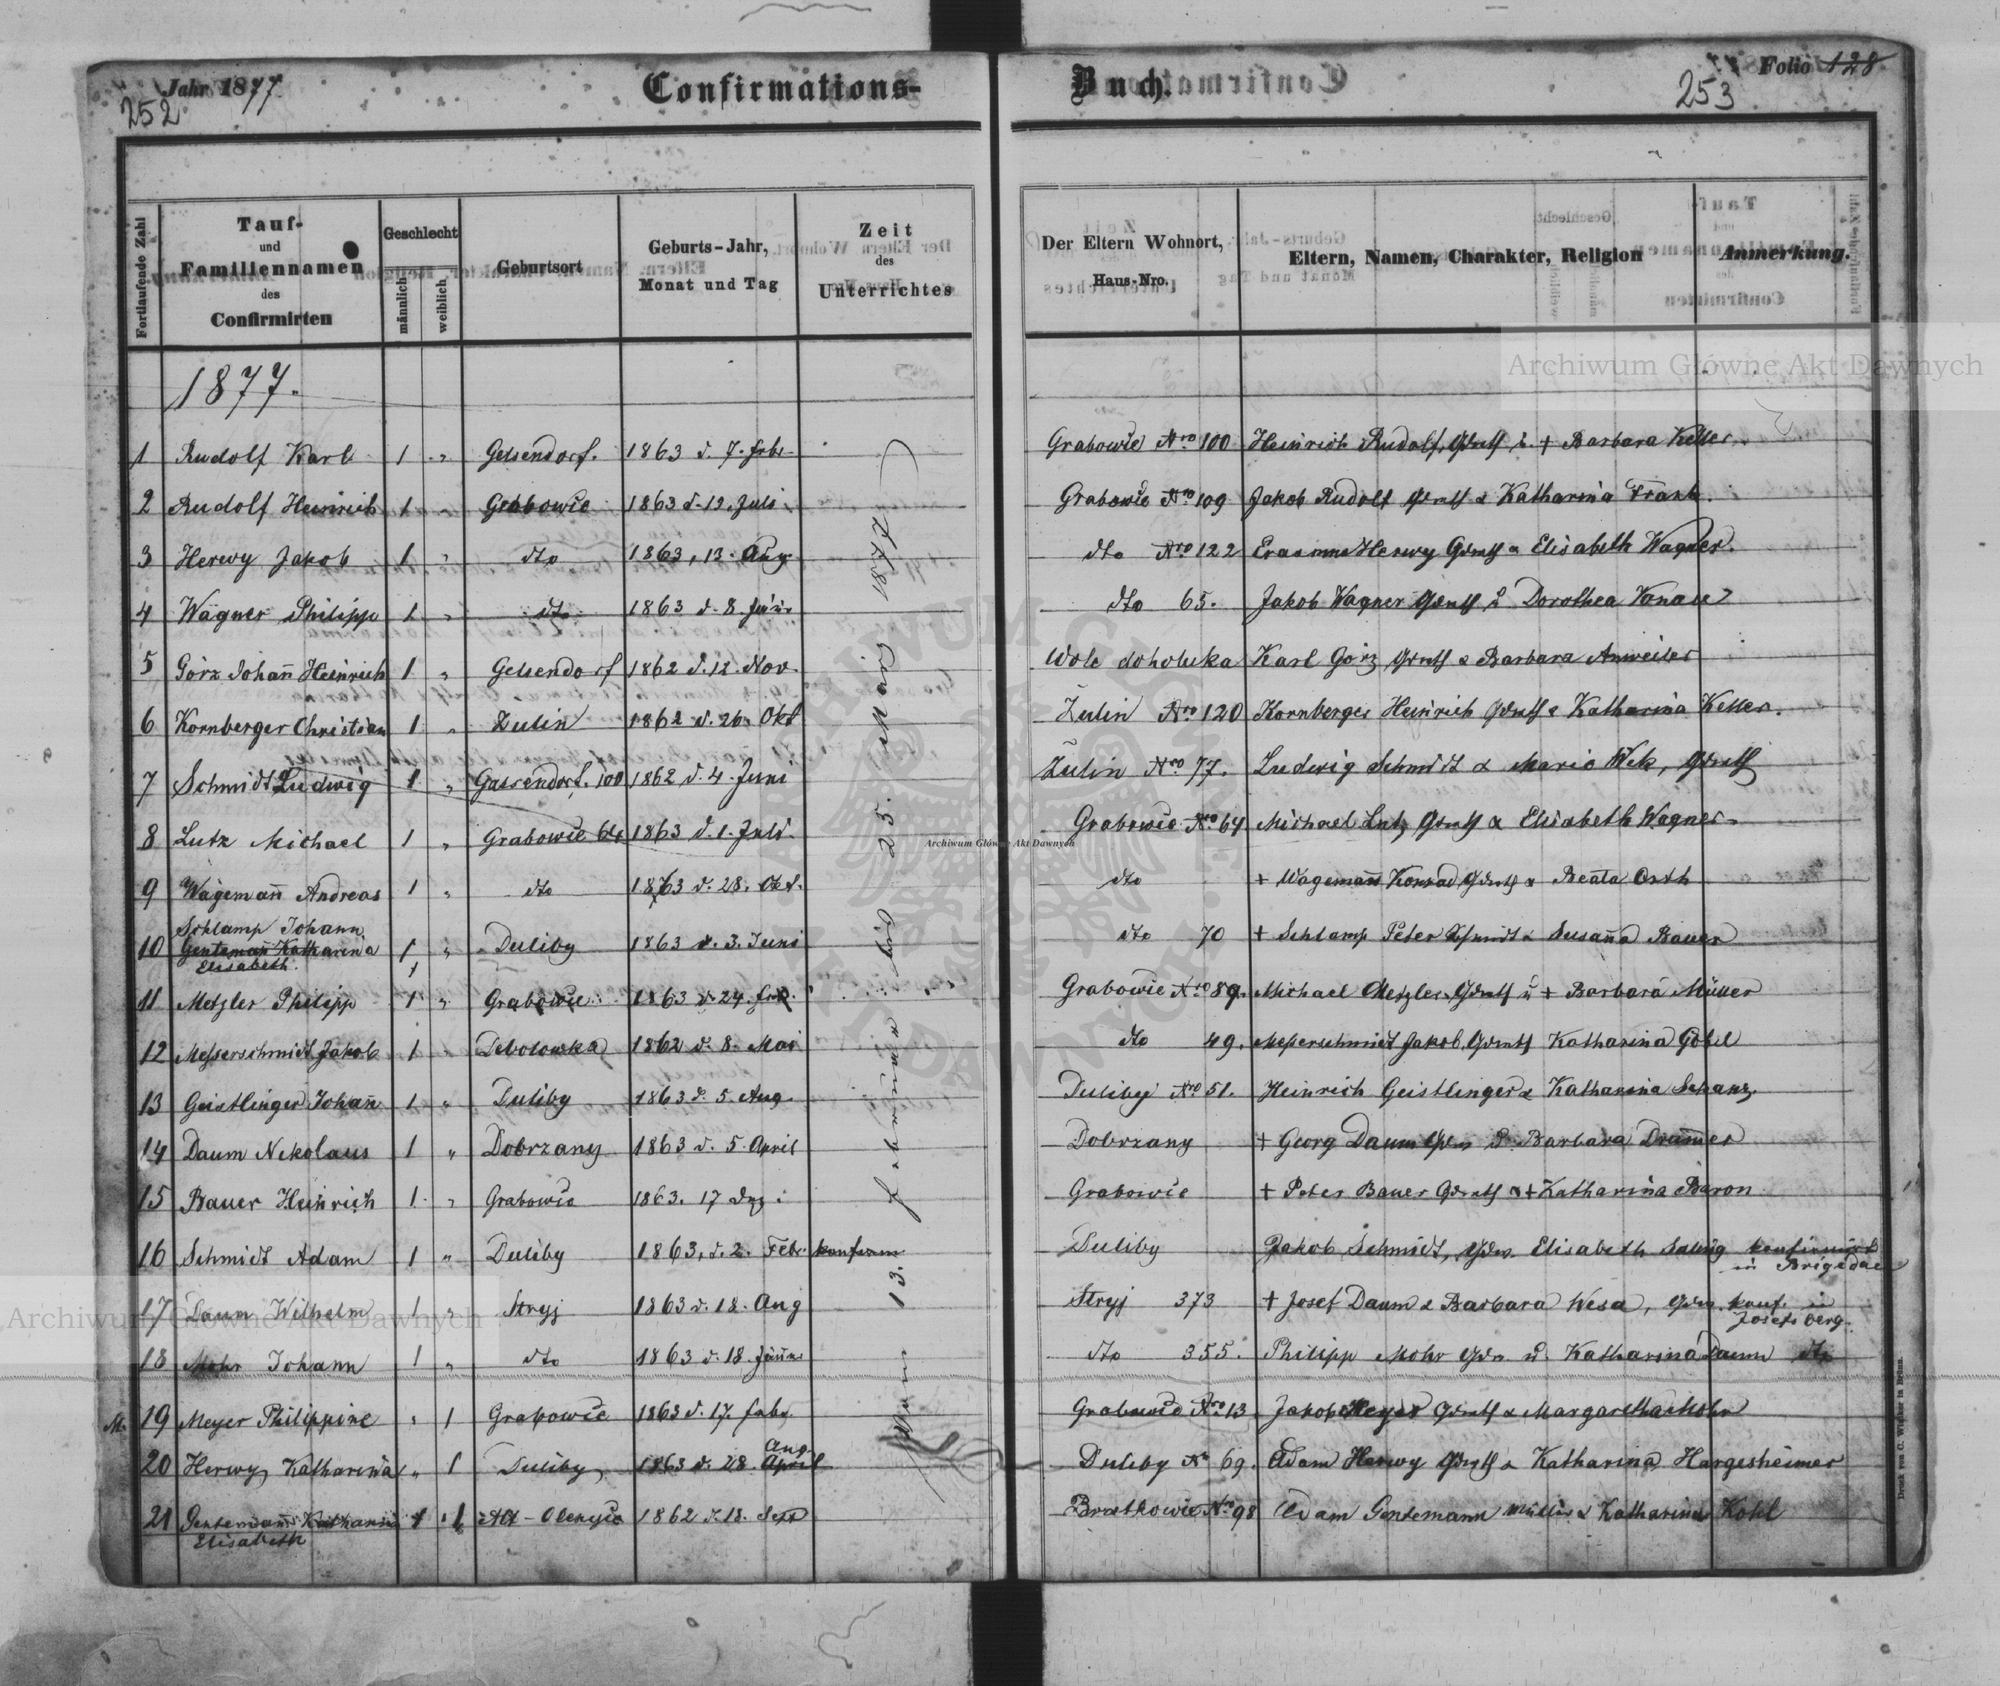 Jahr 1877
252
Confirmations-
Buch.
Folio 128
253
Fortlaufende Zahl
Tauf-
und
Familiennamen
des
Confirmirten
Geschlecht
männlich
weiblich
Geburtsort
Geburts-Jahr,
Monat und Tag
Zeit
des
Unterrichtes
Der Eltern Wohnort,
Haus-Nro.
Eltern, Namen, Charakter, Religion
Anmerkung.
1877.
1 Rudolf Karl 1 " Gelsendorf. 1863 d. 7. Febr. Grabowie Nro 100 Heinrich Rudolf, Grdth u. + Barbara Keller.
2 Rudolf Heinrich 1 " Grabowie 1863 d. 12. Juli Grabowie Nro 109 Jakob Rudolf Grdth & Katharina Frank.
3 Herwy Jakob 1 " dto 1863, 13. Aug. dto Nro 122 Herwy Grdth & Elisabeth Wagner.
4 Wagner Philipp 1 " dto 1863 d. 8. dto 65. Jakob Wagner Grdth u. Dorothea
5 Görz Johañ Heinrich 1 " Gelsendorf 1862 d. 12. Nov. Wole doholuka Karl Görz Grdth & Barbara Anweiler
6 Kornberger Christian 1 " Zulin 1862 d. 26. Okt Zulin Nro 120 Kornberger Heinrich Grdth & Katharina Keller.
7 Schmidt Ludwig 1 " Gassendorf. 100 1862 d. 4. Juni Zulin Nro 77. Ludwig Schmidt & Maria Wek, Grdth
8 Lutz Michael 1 " Grabowie 64 1863 d. 1. Juli. Grabowie Nro 64 Michael Lutz Grdth & Elisabeth Wagner.
9 Wagemañ Andreas 1 " dto 1863 d. 28. Okt. dto + Wagemañ Konrad, Grdth & Beata Orth
Schlamp Johann
10 Gentemañ Katharina 1 " Duliby 1863 d. 3. Juni dto 70 + Schlamp Peter & Susaña Bauer
Elisabeth. 1
11 Metzler Philipp 1 " Grabowie 1863 d. 24. Grabowie Nro 89. Michael Metzler, Grdth u + Barbara Müller
12 Messerschmidt Jakob 1 " Debolowka 1862 d. 8. Mai dto 49. Messerschmidt Jakob, Grdth Katharina Göbel
13 Geistlinger Johañ 1 " Duliby 1863 d. 5. Aug. Duliby Nro 51. Heinrich Geistlinger & Katharina Schanz.
14 Daum Nikolaus 1 " Dobrzany 1863 d. 5. April Dobrzany + Georg Daum Barbara Drummer
15 Bauer Heinrich 1 " Grabowie 1863. 17 Dez. Grabowie + Peter Bauer Grdth & + Katharina Baron
16 Schmidt Adam 1 " Duliby 1863, d. 2. Febr. konfirm Duliby Jakob Schmidt, Elisabeth konfirmirt
in Brigidau
17 Daum Wilhelm 1 " Stryj 1863 d. 18. Aug Stryj 373 + Josef Daum & Barbara Wesa, konf. in
Josefsberg.
18 Mohr Johann 1 " dto 1863 d. 18. Jäñer dto 355. Philipp Mohr u. Katharina Daum dto
M. 19 Meyer Philippine " 1 Grabowie 1863 d. 17. Febr. Grabowie Nro 13 Jakob Meyer Grdth & Margaretha Mohr
Aug.
20 Herwy Katharina " 1 Duliby 1863 d. 28. April Duliby Nr 69. Adam Herwy Grdth & Katharina Hargesheimer
21 Gentemañ Katharina 1 " 1 Alt-Oleksice 1862 d. 18. Sept Bratkowie Nro 98 Adam Gentemann Müller & Katharina Kohl
Elisabeth
13. Februar bis 25. März 1877
Druck von C. Winiker in Brünn.
Archiwum Główne Akt Dawnych
Archiwum Główne Akt Dawnych
Archiwum Główne Akt Dawnych